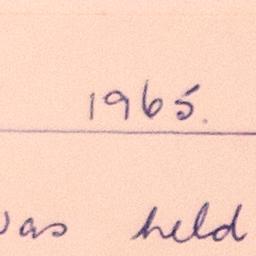 1965.
was held